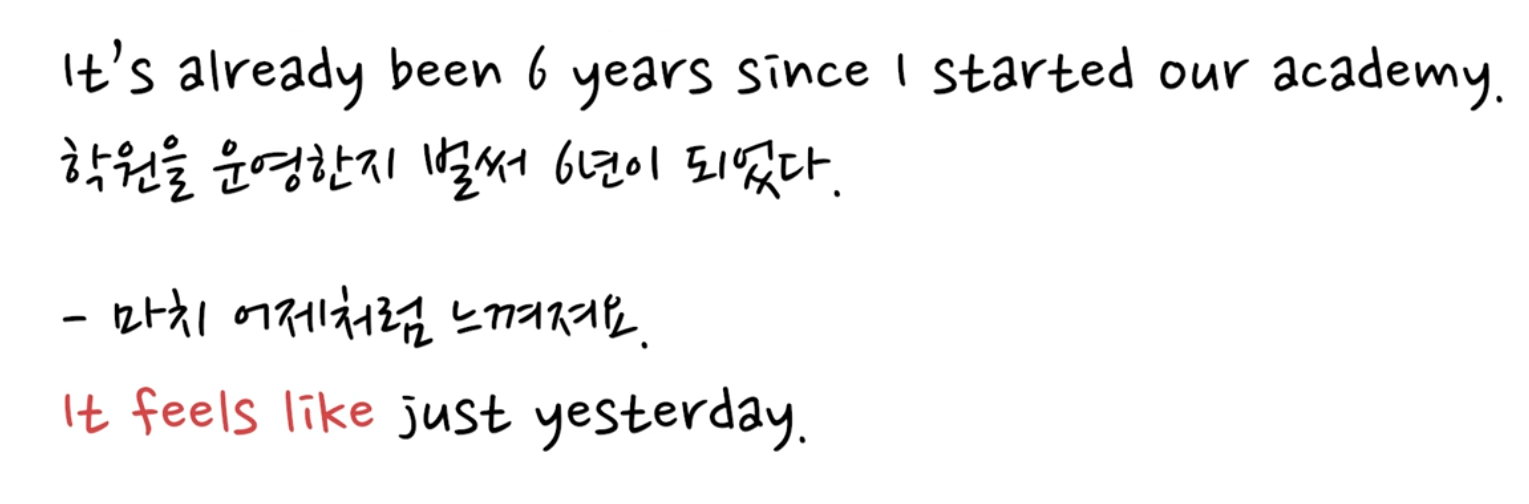 It's already been 6 years since I started our academy.
학원을 운영한지 벌써 6년이 되었다.
- 마치 어제처럼 느껴져요.
It feels like just yesterday.